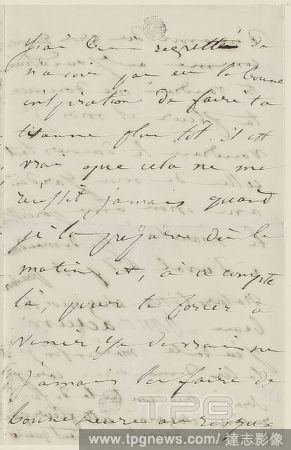 J'ai bien regretté de
n'avoir pas eu la bonne
inspiration de faire ta
tisanne plus tôt. il est
vrai que cela ne me
réussit jamais quand
je la prépare dès le
matin et, à ce compte
là, pour te forcer à
venir, je devrais ne
jamais la faire de
bonne heure au risque
TPG
www.tpgnews.com / 達志影像